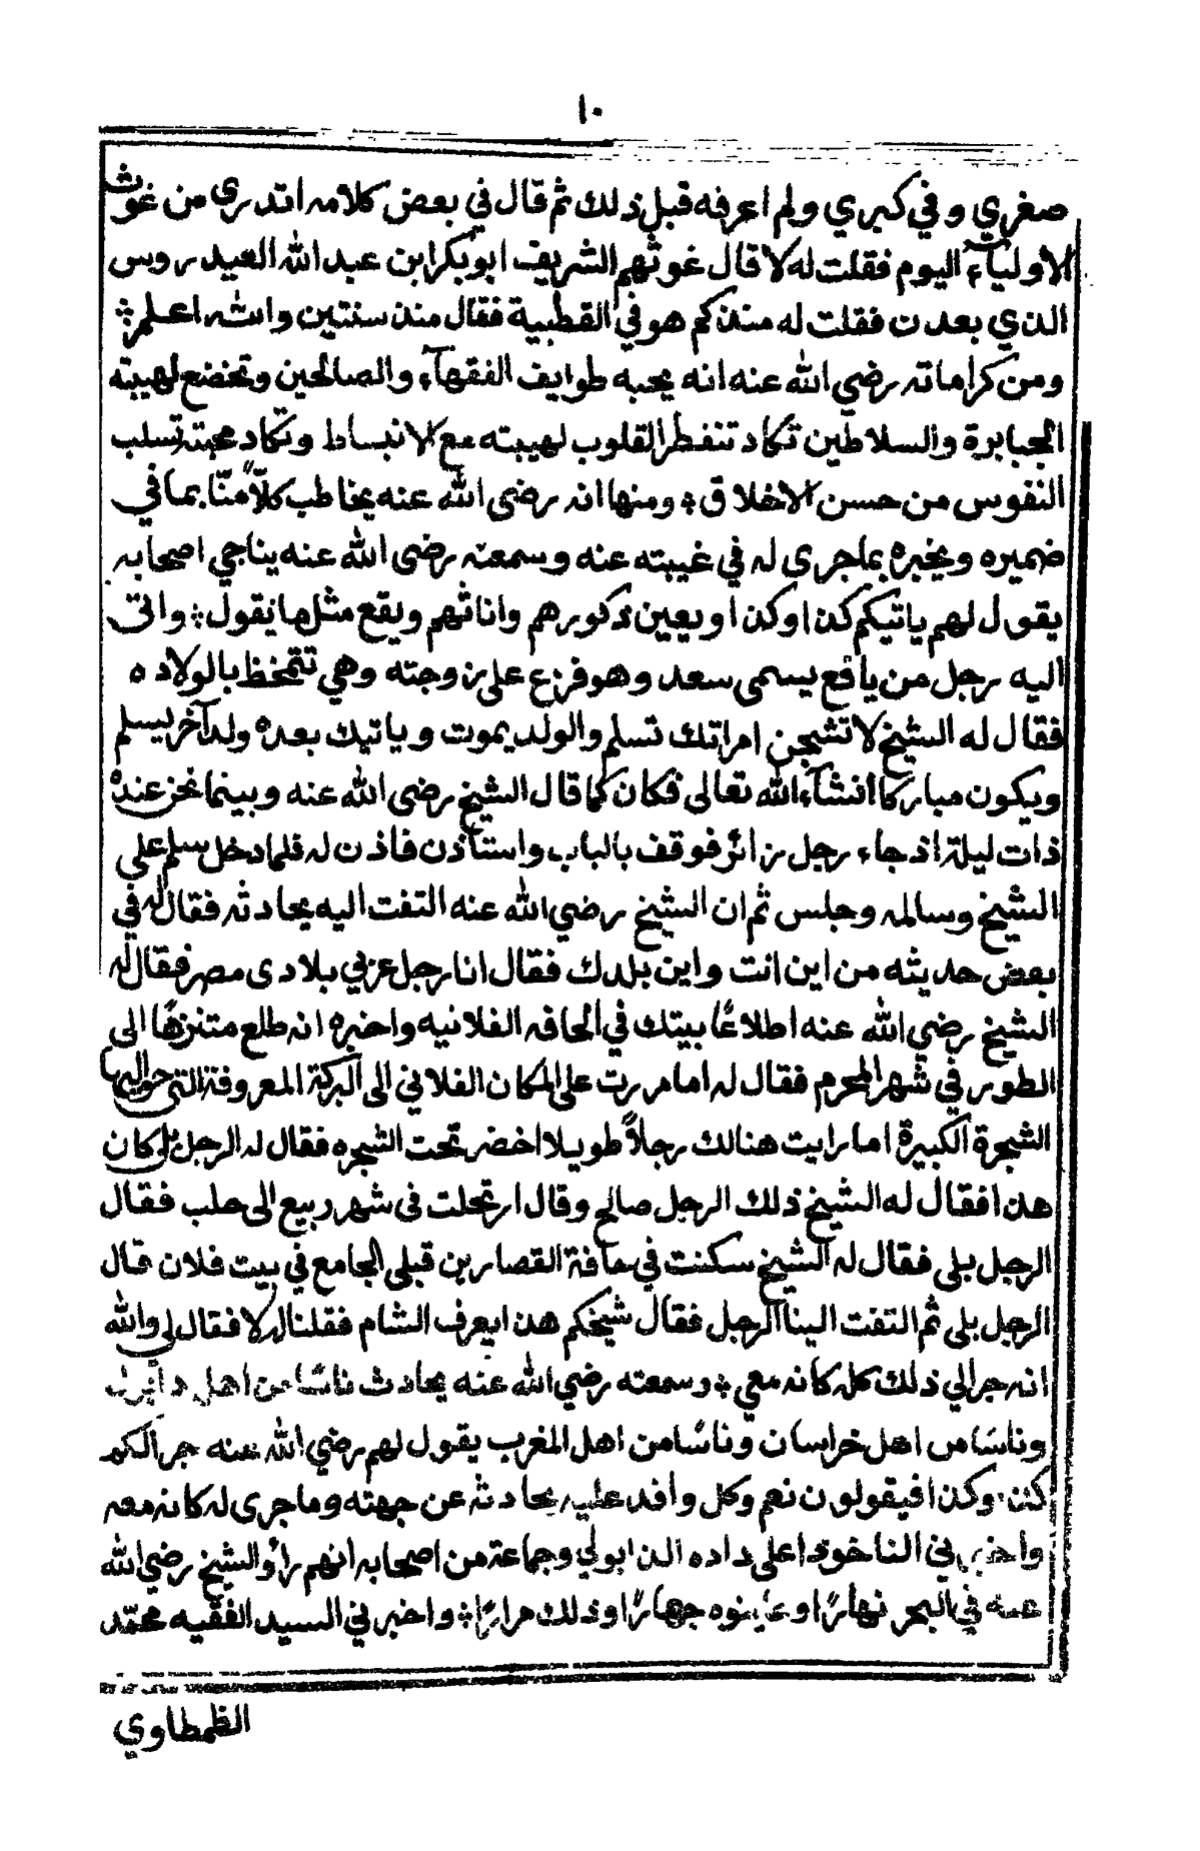 ١٠
صغري وفي كبري ولم اعرفه قبل ذلك ثم قال في بعض كلامه اتدري من غوث
الاوليآء اليوم فقلت له لا قال غوثهم الشريف ابو بكر ابن عبد الله العيدروس
الذي بعدن فقلت له منذ كم هو في القطبية فقال منذ سنتين والله اعلم ؞
ومن كراماته رضي الله عنه انه يحبه طوايف الفقهآء والصالحين وتخضع لهيبته
الجبابرة والسلاطين تكاد تنفطر القلوب لهيبته مع الانبساط وتكاد محبته تسلب
النفوس من حسن الاخلاق ؞ ومنها انه رضى الله عنه يخاطب كلاًّ منّا بما في
ضميره ويخبره بماجرى له في غيبته عنه وسمعته رضى الله عنه يناجي اصحابه
يقول لهم ياتيكم كذا وكذا ويعين ذكورهم واناثهم ويقع مثل ما يقول ؞ واتى
اليه رجل من يافع يسمى سعد وهو فزع على زوجته وهي تتمخظ بالولاده
فقال له الشيخ لا تشجن امراتك تسلم والولد يموت وياتيك بعده ولد آخر يسلم
ويكون مباركا انشآء الله تعالى فكان كما قال الشيخ رضى الله عنه وبينما نحن عنده
ذات ليلة اذ جاء رجل زائر فوقف بالباب واستاذن فاذن له فلما دخل سلم على
الشيخ وسالمه وجلس ثم ان الشيخ رضي الله عنه التفت اليه يحادثه فقال له في
بعض حديثه من اين انت واين بلدك فقال انا رجل عزبي بلادى مصر فقال له
الشيخ رضي الله عنه اطلاعًا بيتك في الحافه الفلانيه واخبره انه طلع متنزهًا الى
الطور في شهر المحرم فقال له اما مررت على المكان الفلاني الى البركة المعروفة التي حواليها
الشجرة الكبيرة اما رايت هنالك رجلاً طويلا اخضر تحت الشجره فقال له الرجل بلى كان
هذا فقال له الشيخ ذلك الرجل صالح وقال ارتحلت فى شهر ربيع الى حلب فقال
الرجل بلى فقال له الشيخ سكنت في حافة القصارين قبلى الجامع في بيت فلان قال
الرجل بلى ثم التفت الينا الرجل فقال شيخكم هذا يعرف الشام فقلنا له لا فقال لي والله
انه جرا لي ذلك كله كانه معي ؞ وسمعته رضي الله عنه يحادث ناسًا من اهل
وناسًا من اهل خراسان وناسًا من اهل المغرب يقول لهم رضي الله عنه جرالكم
كذا وكذا فيقولون نعم وكل وافد عليه يحادثه عن جهته وما جرى له كانه معه
واخبرني الناخوذا على داده الذابولي وجماعة من اصحابه انهم رأو الشيخ رضي الله
عنه في البحر نهارًا وعاينوه جهارًا وذلك مرارًا ؞ واخبرني السيد الفقيه محمّد
الظمطاوي